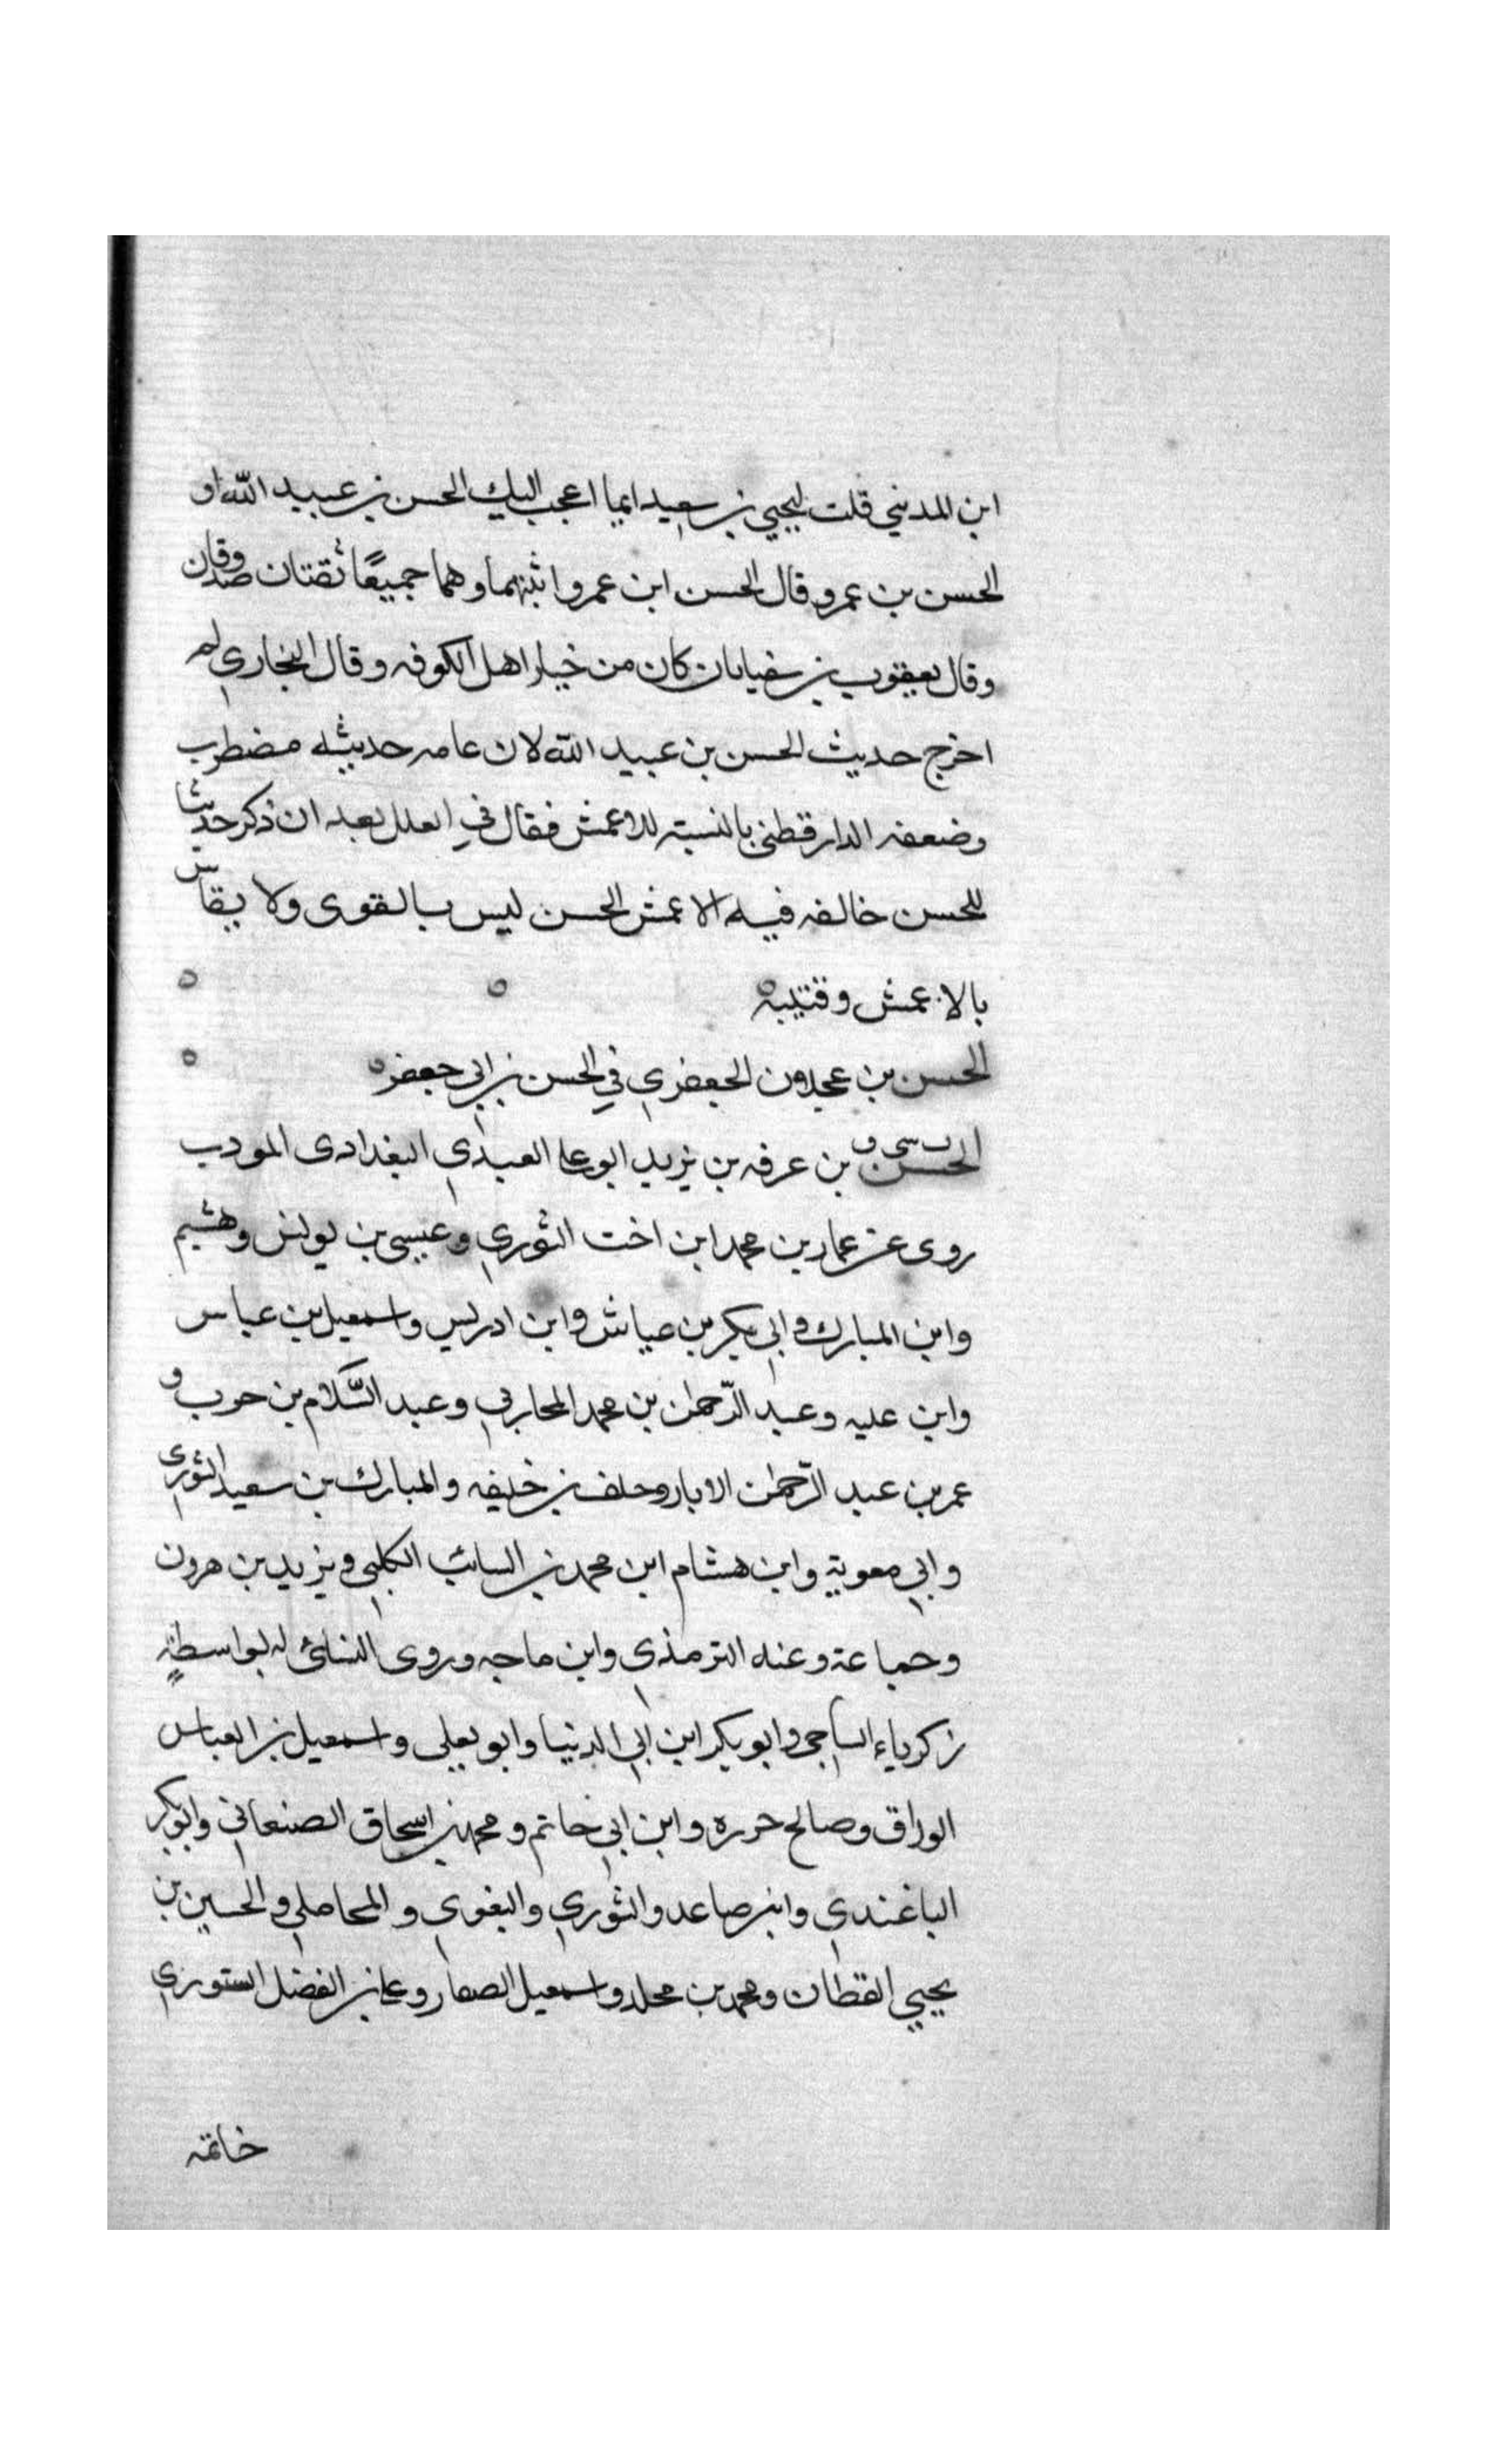 ابن المديني قلت ليحيي بن سعيد ايما اعجب اليك الحسن بن عبيد الله او
الحسن بن عمرو قال الحسن ابن عمرو اثبتهما وهما جميعًا ثقتان صدوقان
وقال يعقوب بن سفيان كان من خيار اهل الكوفه وقال البخاري لم
اخرج حديث الحسن بن عبيد الله لان عامه حديثه مضطرب
وضعفه الدارقطني بالنسبة للاعمش فقال في العلل بعد ان ذكر حديثا
للحسن خالفه فيه الاعمش الحسن ليس بالقوى ولا يقاس
بالاعمش وقتيبه
الحسن بن عجدون الجعفري في الحسن بن ابي جعفر
الحسن بن عرفه بن يزيد ابو على العبدي البغدادى المودب
روى عن عمار بن محمد ابن اخت الثوري وعيسى بن يونس وهشيم
وابن المبارك وابي بكر بن عياش وابن ادريس واسمعيل بن عياس
وابن عليه وعبد الرّحمن بن محمد المحاربي وعبد السّلام بن حرب و
عمر بن عبد الرّحمن الابار وحلف بن خليفه والمبارك بن سعيد الثوري
وابي معوية وابن هشام ابن محمد بن السائب الكلبي ويزيد بن هرون
وجماعة وعنه الترمذي وابن ماجه وروى النسائ له بواسطة
زكرياء الساجي وابو بكر ابن ابي الدنيا وابو يعلى واسمعيل بن العباس
الوراق وصالح حرره وابن ابي حاتم ومحمد بن اسحاق الصنعاني وابو بكر
الباغندي وابن صاعد والثوري والبغوي والمحاملي والحسين بن
يحيي القطان ومحمد بن محلد واسمعيل الصفار وعلى بن الفضل الستوري
خاتمه